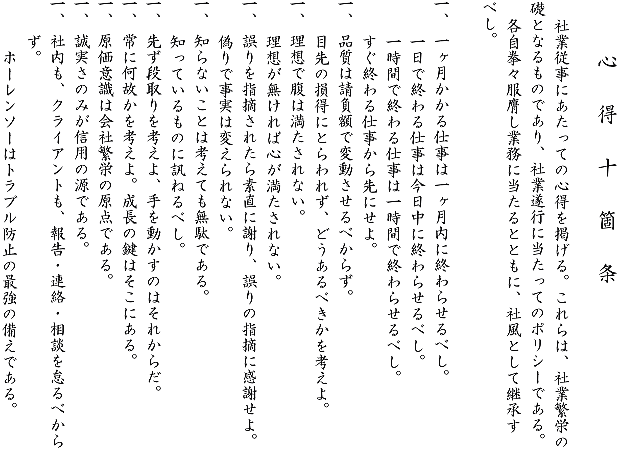 心得十箇条
社業従事にあたっての心得を掲げる。これらは、社業繁栄の
礎となるものであり、社業遂行に当たってのポリシーである。
各自拳々服膺し業務に当たるとともに、社風として継承す
べし。
一、一ヶ月かかる仕事は一ヶ月内に終わらせるべし。
一日で終わる仕事は今日中に終わらせるべし。
一時間で終わる仕事は一時間で終わらせるべし。
すぐ終わる仕事から先にせよ。
一、品質は請負額で変動させるべからず。
目先の損得にとらわれず、どうあるべきかを考えよ。
一、理想で腹は満たされない。
理想が無ければ心が満たされない。
一、誤りを指摘されたら素直に謝り、誤りの指摘に感謝せよ。
偽りで事実は変えられない。
一、知らないことは考えても無駄である。
知っているものに訊ねるべし。
一、先ず段取りを考えよ、手を動かすのはそれからだ。
一、常に何故かを考えよ。成長の鍵はそこにある。
一、原価意識は会社繁栄の原点である。
一、誠実さのみが信用の源である。
一、社内も、クライアントも、報告・連絡・相談を怠るべから
ず。
ホーレンソーはトラブル防止の最強の備えである。